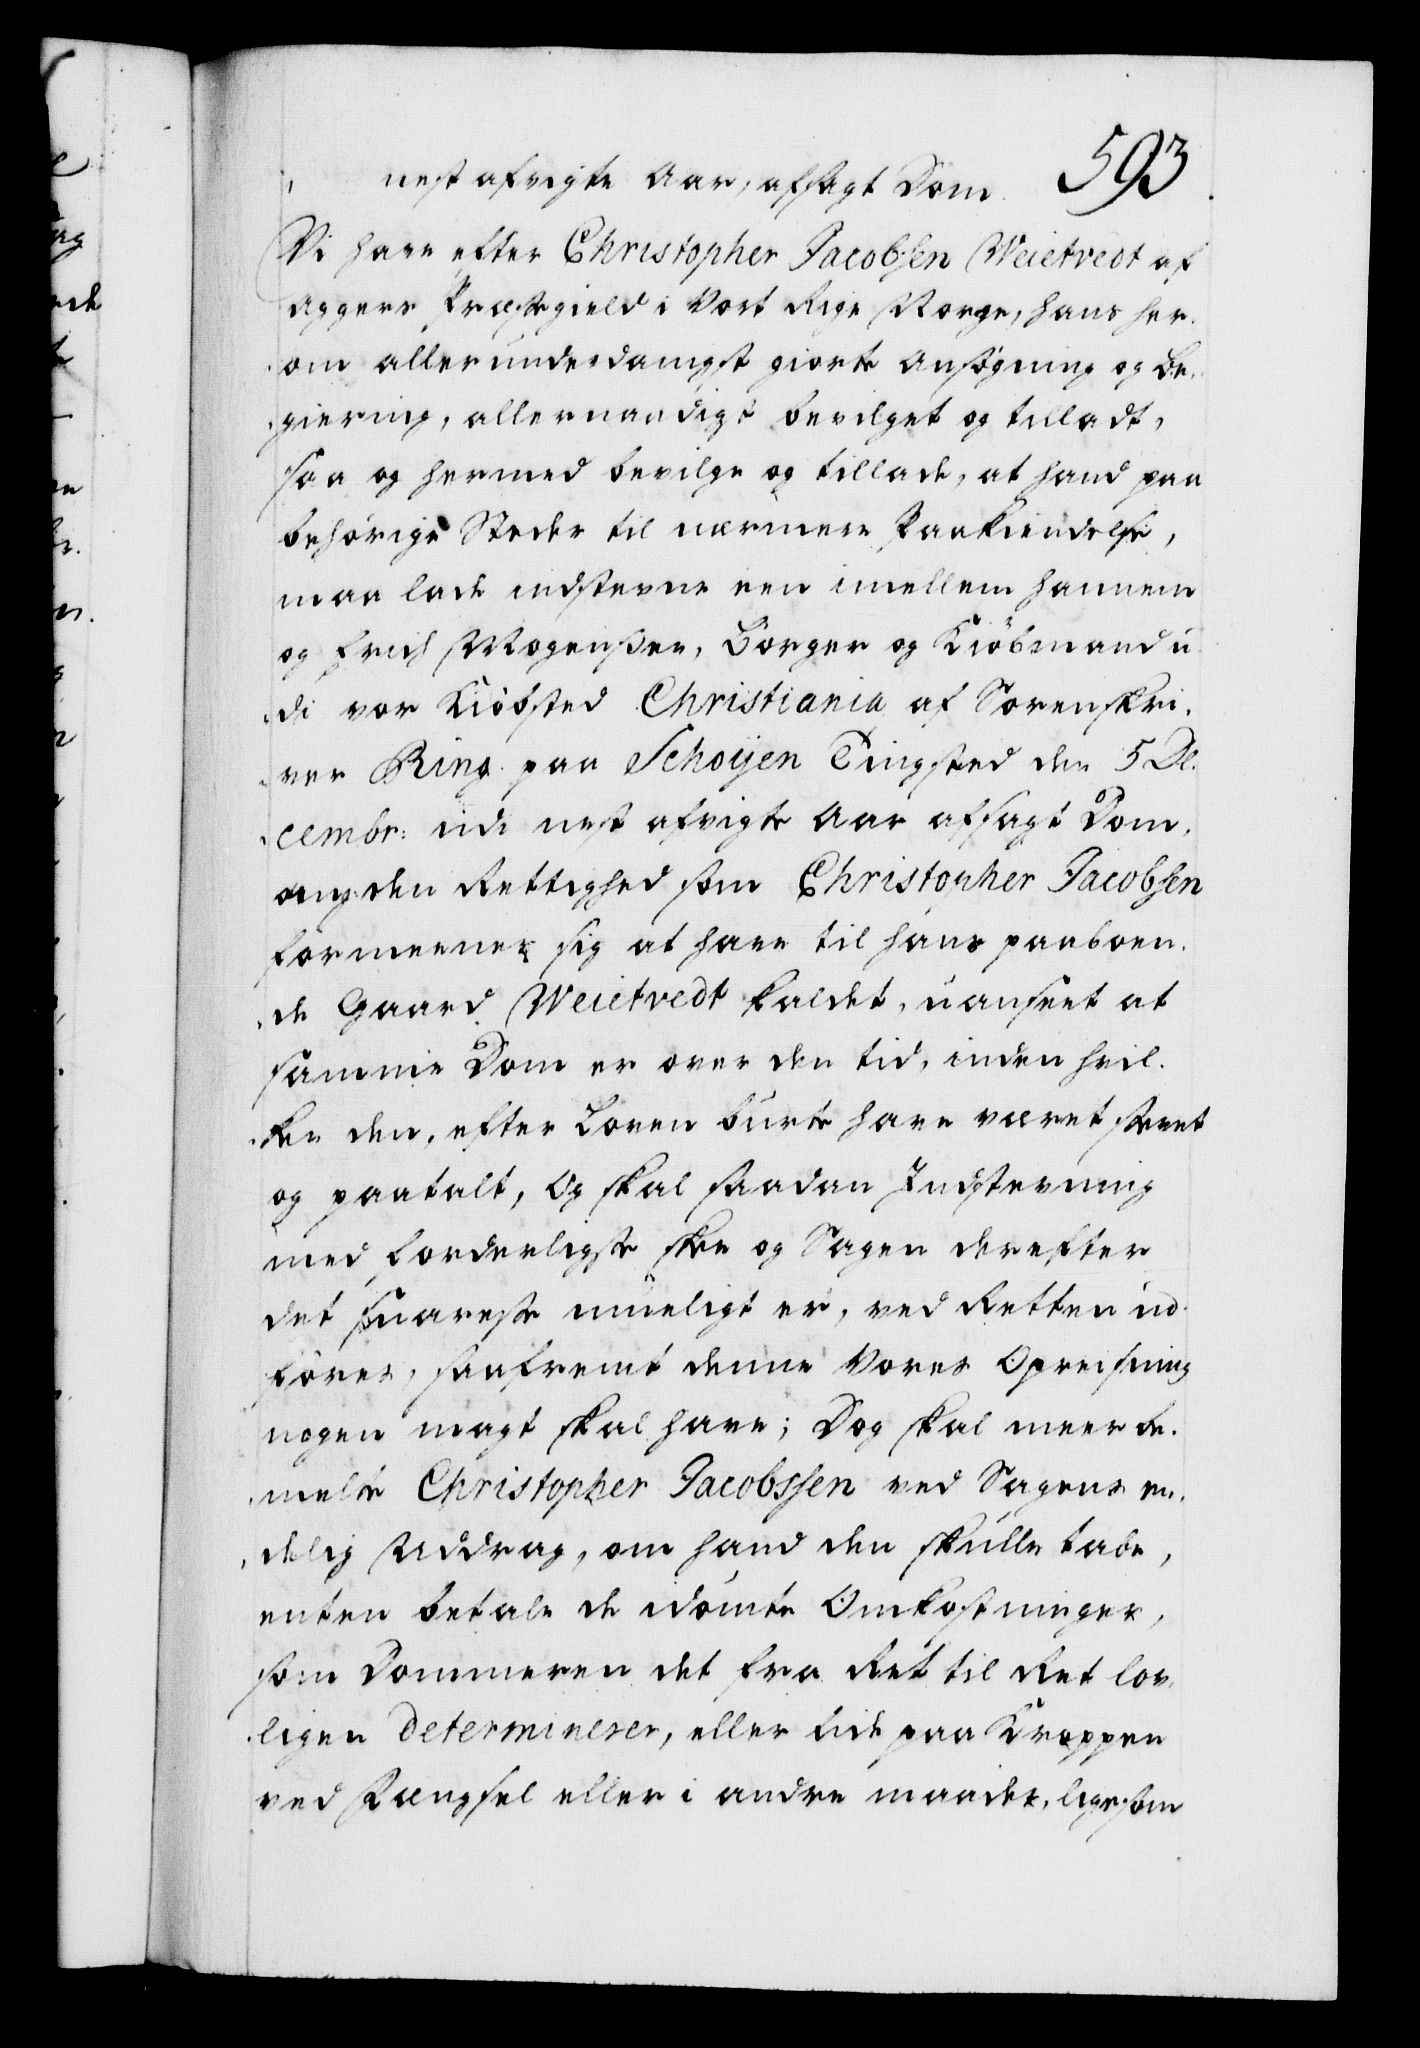 593.
nest afvigte Aar, afsagt Dom.
Vi have efter Christopher Jacobsen Weietvedt af
Aggers Præstegield i Vort Rige Norge, hans her-
om allerunderdanigst giorte Ansøgning og Be-
giering, allernaadigst bevilget og tilladt,
saa og hermed bevilge og tillade, at hand paa
behørige Steder til nærmere Paakiendelse,
maa lade indstevne een imellem hannem
og Erich Mogensøn, Borger og Kiöbmand u-
di vor Kiöbsted Christiania af Sorenskri-
ver Ring paa Schoÿen Tingsted den 5 De-
cembr: udi nest afvigte Aar afsagt Dom,
ang: den Rettighed som Christopher Jacobsen
formeener sig at have til hans paaboen-
de Gaard Weietvedt kaldet, uanseet at
samme Dom er over den tid, inden hvil-
ken den, efter Loven burte have været stevnt
og paatalt, Og skal saadan Indstevning
med forderligste skee og Sagen derefter
det snareste mueligt er, ved Retten ud-
føres, saafremt denne Vores Opreisning
nogen magt skal have; Dog skal meerbe-
melte Christopher Jacobssen ved Sagens en-
delig Uddrag, om hand den skulle tabe,
enten betale de idømte Omkostninger,
som Dommeren det fra Ret til Ret lov-
ligen determinerer, eller lide paa Kroppen
ved Fængsel eller i andre maader, ligesom